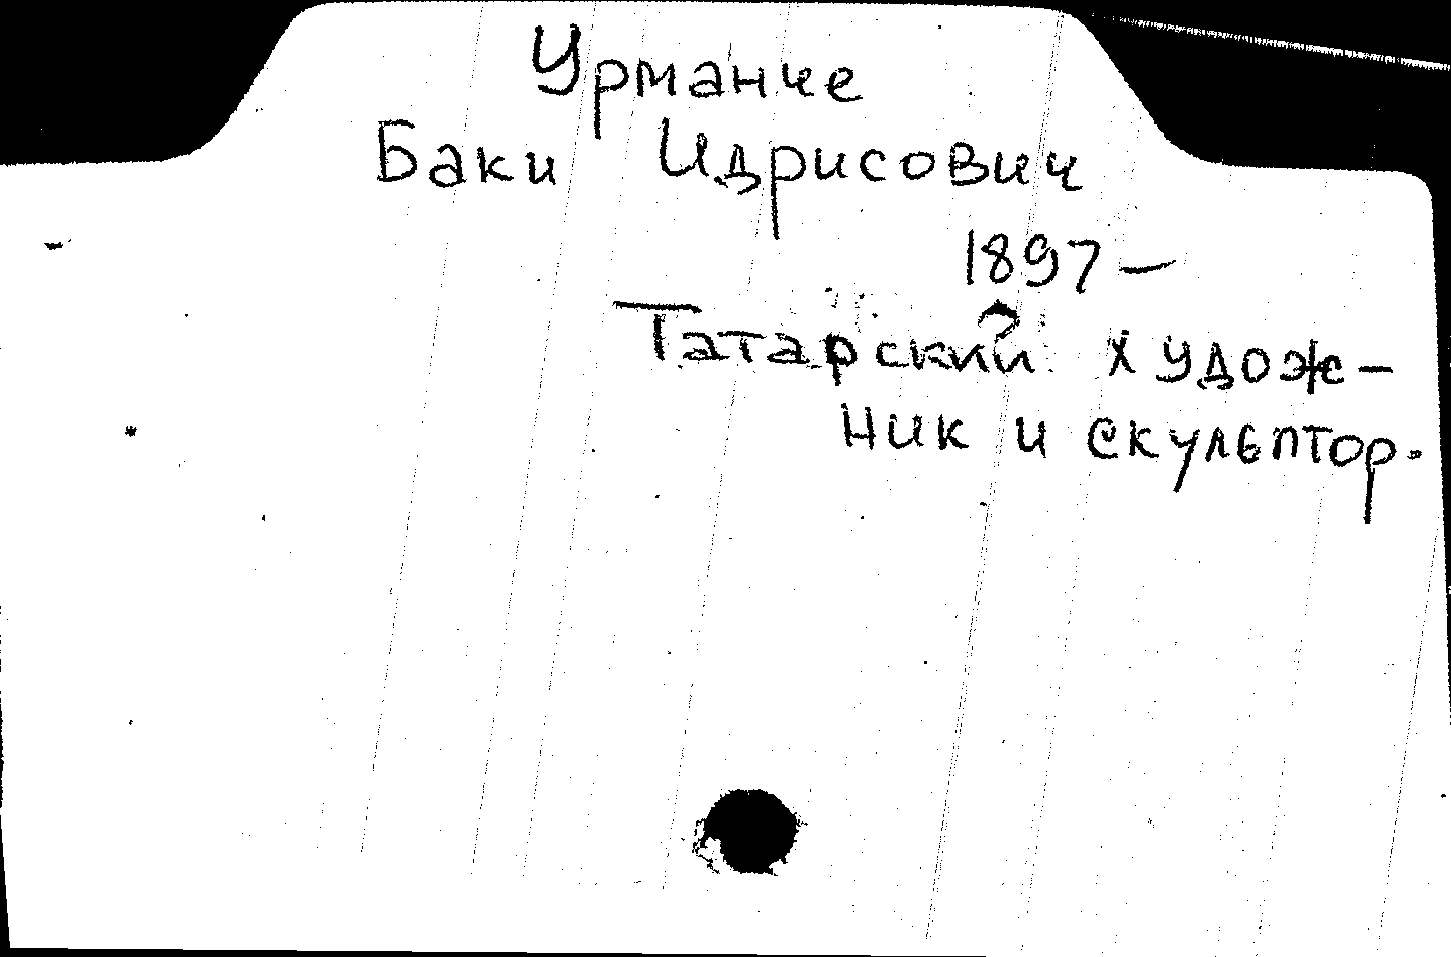 Урманче
Баки Идрисович
1897 —
Татарский худож-
ник и скульптор.